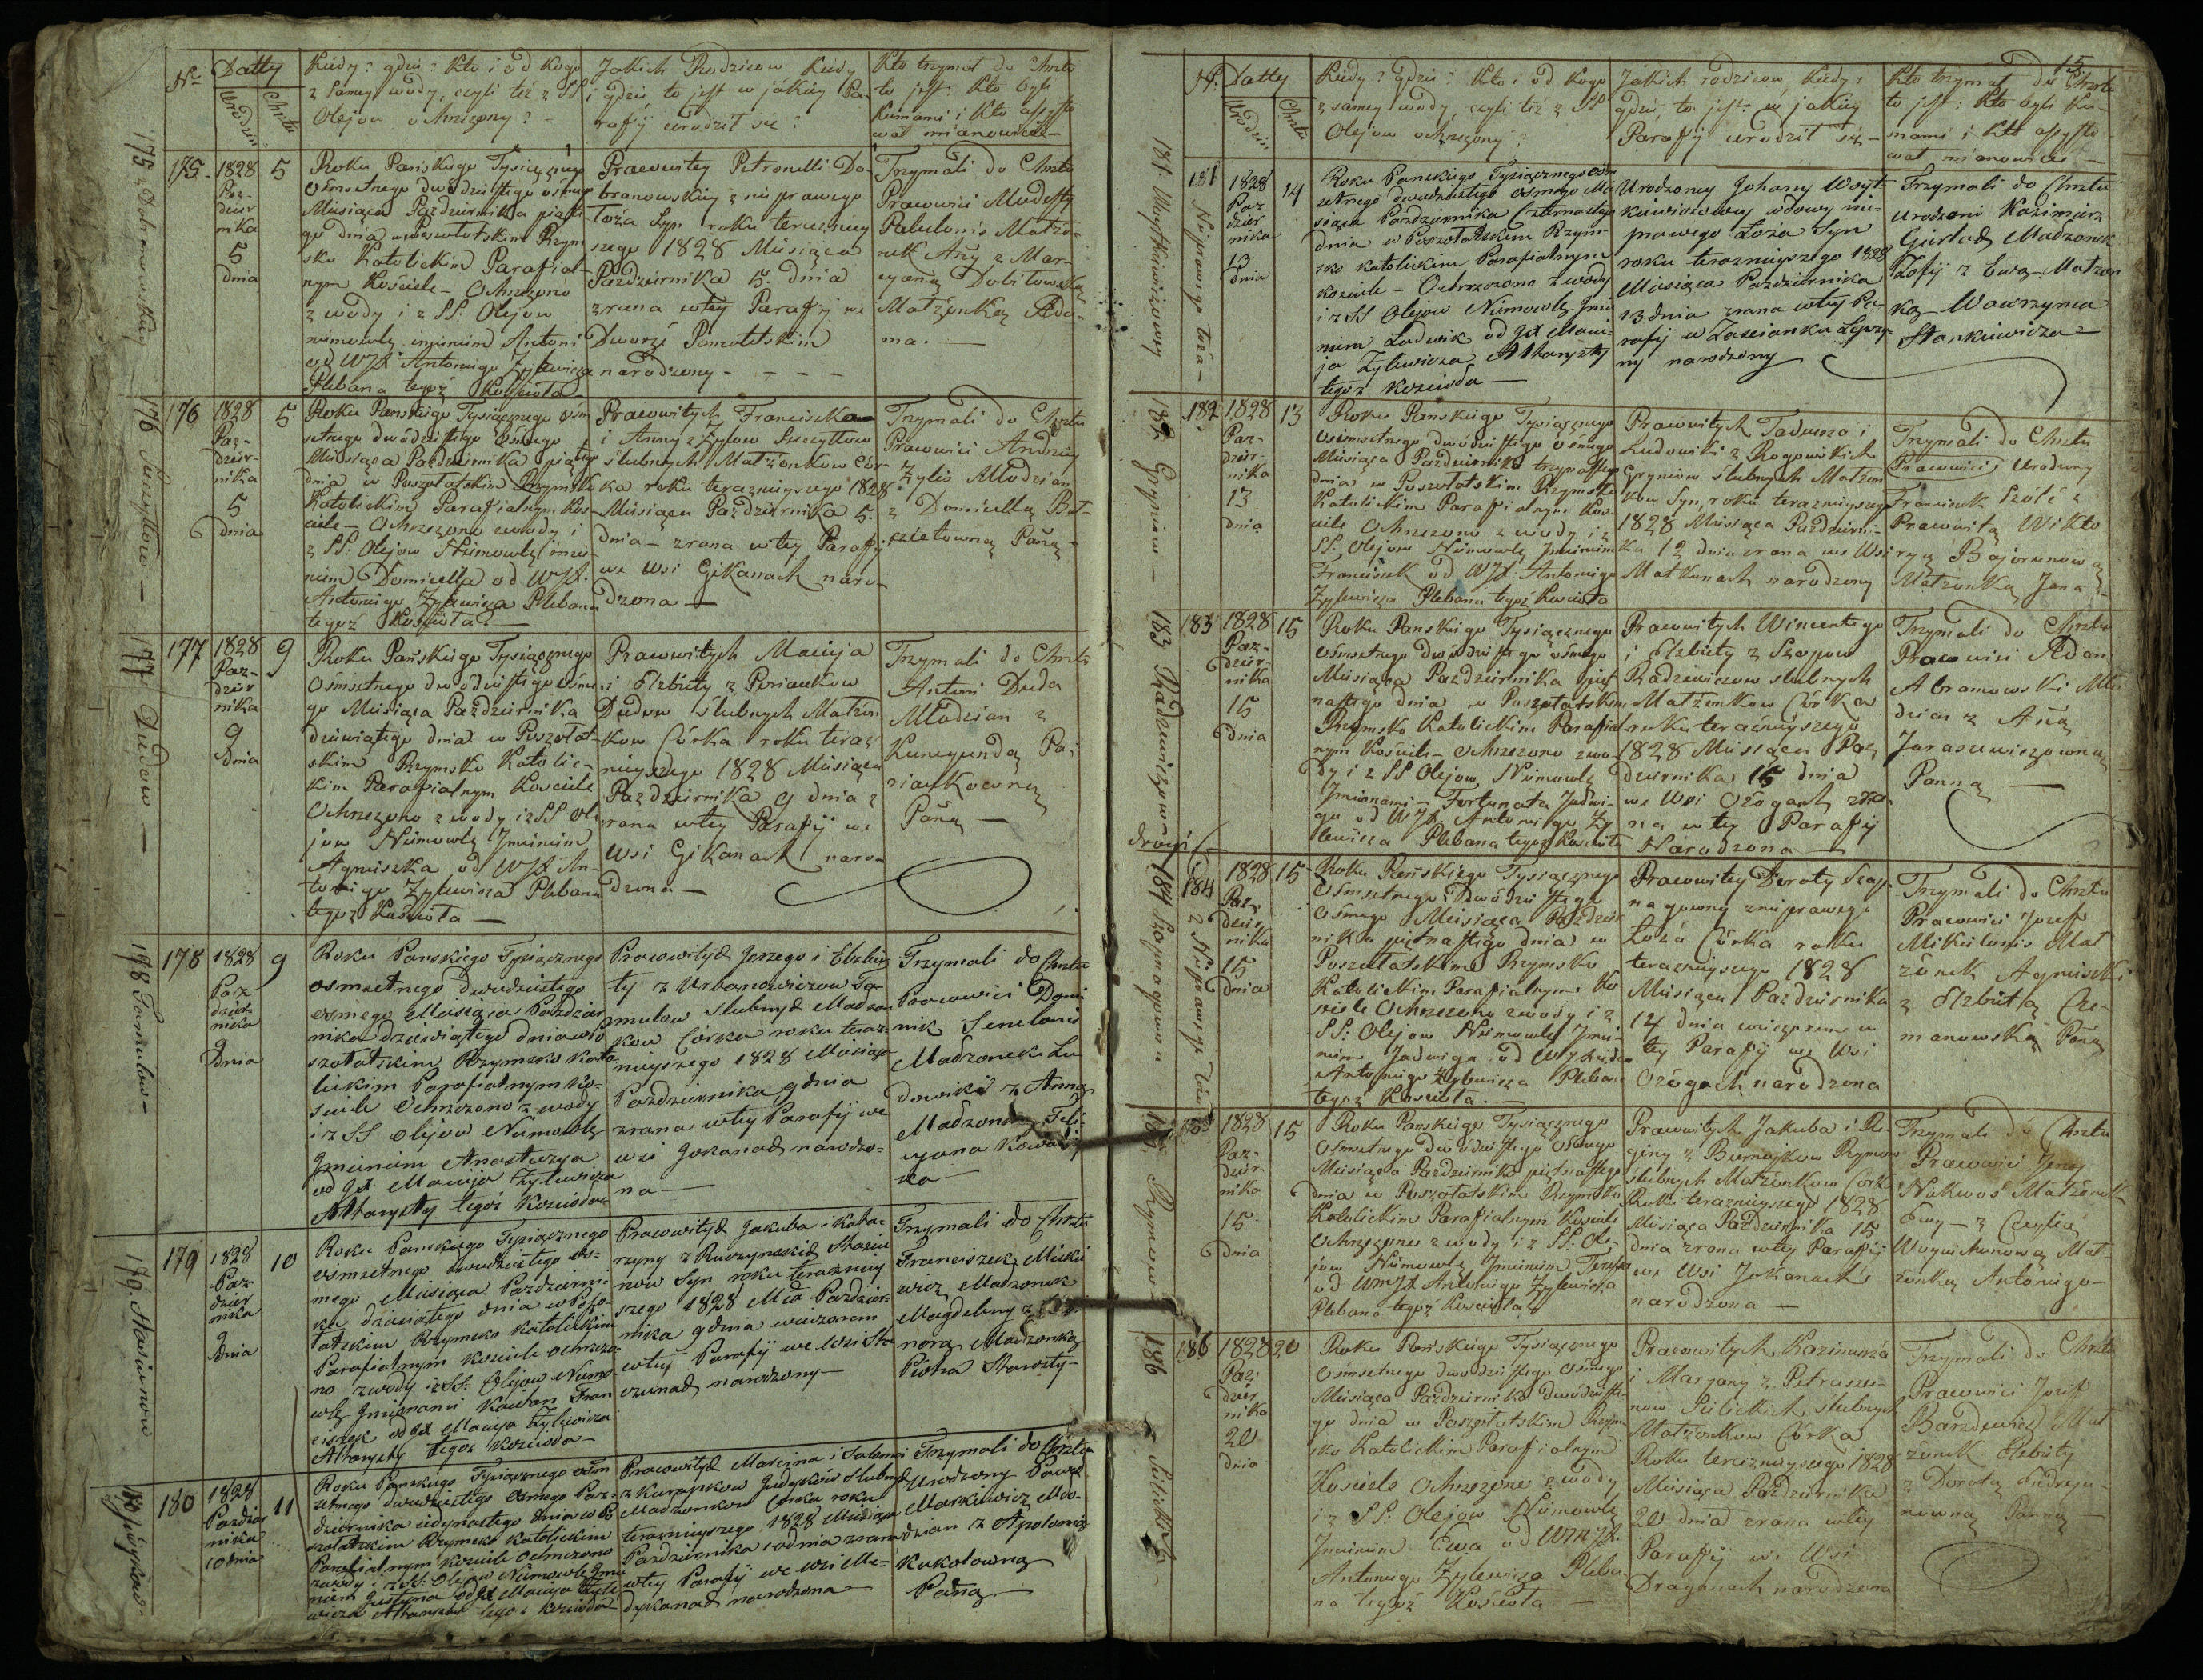 Nr Datty
Urodzin
Chrztu
Kiedy? gdzie? Kto i od Kogo
z samey wody, czyli też z SS
Olejow ochrzczony? -
Jakich Rodzicow Kiedy
i gdzie to jest w jakiey Pa-
rafij urodził się?
Kto trzymał do Chrztu
to jest: Kto był
Kumami i Kto assysto
wał mianowicie -
175
1828
Paz-
dzier
nika
5
dnia
5
Roku Pańskiego Tysiącznego
Ośmsetnego dwódziestego ósmego
Miesiąca Pazdziernika piąte
go dnia w Poszołatskim Rzym
sko Katolickim Parafial-
nym Kościele - Ochrzczono
z wody i z SS: Olejow
niemowlę imieniem Antoni
od WJX Antoniego Zylewicza
Plebana tegoż Kościoła
Pracowitey Petronelli Do-
branowskiey z nie prawego
Łoża Syn roku terazniey
szego 1828 Miesiąca
Pazdziernika 5. dnia
zrana wtey Parafij we
Dworze
narodzony - - - -
Trzymali do Chrztu
Pracowici Modesty
Matżo-
nek Anny z Mar-
cyanną
Matżonką Ada-
ma. -
176 Szczyttow -
176
1828
Paz-
dzier-
nika
5
dnia
5
Roku Panskiego Tysiącznego osm
setnego dwódziestego Ósmego
Miesiąca Pazdziernika piątego
dnia w Poszołatskim Rzymsko
Katolickim Parafialnym Koś-
ciele - Ochrzczono z wody i
z SS: Olejow Niemowlę imie-
niem Domicella od WJX.
Antoniego Zylewicza Plebana
tegoż Kościoła -
Pracowitych Franciszka
i Anny z Zylow Szczyttow
slubnych Matżonkow Cór-
ka roku teraznieyszego 1828
Miesiąca Pazdziernika 5.
dnia - zrana wtey Parafij
we Wsi Gikanach naro-
dzona -
Trzymali do Chrztu
Pracowici Andrzey
Zylis Młodzian
z Domicellą
Panną -
177 Dudow -
177
1828
Paz-
dzier
nika
9
dnia
9
Roku Pańskiego Tysiącznego
Ośmsetnego dwódziestego ósme
go Miesiąca Pazdziernika
dziewiątego dnia w Poszołat-
skim Rzymsko Katolic-
kim Parafialnym Kosciele
Ochrzczono z wody i z SS Ole
jow Niemowlę Jmieniem
Agnieszka od WJX An-
toniego Zylewicza Plebana
tegoż Kościoła -
Pracowitych Macieja
i Elżbiety z
Dudow slubnych Matżon
kow Córka roku teraz
nieyszego 1828 Miesiąca
Pazdziernika 9 dnia z
rana wtey Parafij we
Wsi Gikanach naro-
dzona -
Trzymali do Chrztu
Antoni Duda
Młodzian z
Kunegundą
Panną -
178
1828
Paz
dzier
nika
9
dnia
9
Roku Panskiego Tysiącznego
osmsetnego dwudziestego
osmego Miesiąca Pazdzier
nika dziewiątego dnia w Po
szołatskim Rzymsko kato-
lickim Parafialnym Ko-
sciele Ochrzczono z wody
i z SS olejow Niemowlę
Jmieniem Anastazya
od JX Macieja Zylewicza
Altarysty tegoż Kościoła
Pracowitych Jerzego i Elzbie
ty z Urbanowiczow
slubnych Madzon
kow Córka roku teraz-
nieyszego 1828 Miesiąca
Pazdziernika 9 dnia
zrana wtey Parafij we
wsi Jokanach narodzo-
na -
Trzymali do Chrztu
Pracowici Domi
nik
Madzonek Lu
dowiki z Anną
Madzonką Feli-
cyana
179
1828
Paz
dzier
nika
9
dnia
10
Roku Panskiego Tysiącznego
osmsetnego dwudziestego os-
mego Miesiąca Pazdzierni-
ka dziesiątego dnia w Poszo-
łatskim Rzymsko katolickim
Parafialnym kosciele ochrzczo-
no z wody i z SS: Olejow Niemo-
wlę Jmionami Kaietan Fran
ciszek od JX Macieja Zylewicza
Altarysty tegoż kosciołа -
Pracowitych Jakuba i Kata-
rzyny z
Syn roku terazniey
szego 1828 Pazdzier-
nika 9 dnia wieczorem
wtey Parafij we Wsi
narodzony -
Trzymali do Chrztu
Franciszek Micki
wicz Madzonek
Magdeleny z
Madzonką
Piotra
180
1828
Pazdzier
nika
10 dnia
11
Roku Panskiego Tysiącznego ośm
setnego dwudziestego Osmego Paz-
dziernika iedynastego dnia w Po
szołatskim Rzymsko katolickim
Parafialnym kosciele ochrzczono
z wody i z SS: Olejow Niemowlę Jmie
niem Justyna od JX Macieja Zyle
wicza Altarysty tegoż Kosciołа
Pracowitych Marcina i Salomei
slubnych
Madzonkow Córka roku
teraznieyszego 1828 Miesiąca
Pazdziernika 10 dnia zrana
wtey Parafij we wsi Me-
dykanach narodzona -
Trzymali do Chrztu
Urodzony Paweł
Markiewicz Mło-
dzian z Apolonią
Kukolowną
Panną -
15
Nr. Datty
Urodzin
Chrztu
Kiedy? gdzie? Kto i od Kogo
z samey wody, czyli też z SS
Olejow ochrzczony?
Jakich rodzicow Kiedy?
gdzie, to jest w jakiey
Parafij urodził się -
Kto trzymał do Chrztu
to jest: Kto byli Ku-
mami i Kto assysto
wał mianowicie -
181
1828
Paz
dzier
nika
13
dnia
14
Roku Panskiego Tysiącznego Ośm
setnego dwudziestego osmego Mie
siąca Pazdziernika Czternastego
dnia w Poszołatskim Rzym-
sko katolickim Parafialnym
kosciele - Ochrzczono z wody
i z SS Olejow Niemowlę Jmie
niem Ludwik od JX Macie-
ja Zylewicza Altarysty
tegoż Kosciołа -
Urodzoney Johanny Woyt
kiewiczowey wdowy nie-
prawego Łoza Syn
roku teraznieyszego 1828
Miesiąca Pazdziernika
13 dnia zrana wtey Pa-
rafij w Zascianku
narodzony
Trzymali do Chrztu
urodzeni Kazimierz
Madzonek
Zofij z Ewą Matzon
ką Wawrzynca
Stankiewicza -
182 Gryniow -
182
1828
Paz-
dzier-
nika
13
dnia
13
Roku Panskiego Tysiącznego
Osmsetnego dwódziestego ósmego
Miesiąca Pazdziernika trzynastego
dnia w Poszołatskim Rzymsko
Katolickim Parafialnym Koś-
ciele Ochrzczono z wody i z
SS: Olejow Niemowlę Jmieniem
Franciszek od WJX: Antoniego
Zylewicza Plebana tegoż Kosciołа
Pracowitych Tadeusza i
Ludowiki z Rogowskich
Gryniow slubnych Matzon
kow Syn, roku teraznieyszego
1828 Miesiąca Pazdzierni-
ka 12 dnia zrana we Wsi
Matkunach narodzony
Trzymali do Chrztu
Pracowici Urodzony
Franciszek z
Pracowitą Wikto
ryą Bajorunową
Matzonką Jana -
183 Radziewiczow -
183
1828
Paz-
dzier-
nika
15
dnia
15
Roku Panskiego Tysiącznego
Ośmsetnego dwódziestego ósmego
Miesiąca Pazdziernika pięt
nastego dnia w Poszołatskim
Rzymsko Katolickim Parafial
nym Kościele - Ochrzczono z wo-
dy i z SS Olejow, Niemowlę
Jmionami - Fortunata Jadwi-
ga od WJX Antoniego Zy
lewicza Plebana tegoż Kosciołа
Pracowitych Wincentego
i Elzbiety z
Radziewiczow slubnych
Matżonkow Córka
roku teraznieyszego
1828 Miesiąca Paz
dziernika 15 dnia
we Wsi Ożogach zra
na wtey Parafij
Narodzona -
Trzymali do Chrztu
Pracowici Adam
Abramowski Mło
dzian z Anną
Jaraszewiczowną
Panną -
184
1828
Paz,
dzier
nika
15
dnia
15
Roku Pańskiego Tysiącznego
Ośmsetnego dwódziestego
Ośmego Miesiąca Pazdzier
nika piętnastego dnia w
Poszołatskim Rzymsko
Katolickim Parafialnym Ko
sciele Ochrzczono z wody i z
SS: Olejow Niemowlę Jmie-
niem Jadwiga od WJX
Antoniego Zylewicza Plebana
tegoż Kosciołа. -
Pracowitey Doroty
z nieprawego
Łoża Córka roku
teraznieyszego 1828
Miesiąca Pazdziernika
14 dnia wieczorem w
tey Parafij we Wsi
Ożogach narodzona
Trzymali do Chrztu
Pracowici Jozef
Mikulonis Mat
żonek Agnieszki
z Elzbietą
Panną
1828
Paz-
dzier-
nika
15
dnia
15
Roku Panskiego Tysiącznego
Ośmsetnego dwódziestego osmego
Miesiąca Pazdziernika piętnastego
dnia w Poszołatskim Rzymsko
Katolickim Parafialnym Kosciele
Ochrzczono z wody i z SS: Ole-
jow Niemowlę Jmieniem Teressa
od WMJX Antoniego Zylewicza
Plebana tegoż Kościoła
Pracowitych Jakuba i Re-
giny z
slubnych Matżonkow Córka
Roku teraznieyszego 1828
Miesiąca Pazdziernika 15
dnia zrana wtey Parafij
we Wsi Jokanach
narodzona -
Trzymali do Chrztu
Pracowici Jerzy
Matżonek
Ewy - z Cecylią
Mat
żonką Antoniego -
186
1828
Paz,
dzier
nika
20
dnia
20
Roku Pańskiego Tysiącznego
Ośmsetnego dwódziestego Osmego
Miesiąca Pazdziernika Dwódzieste-
go dnia w Poszołatskim Rzym
sko Katolickim Parafialnym
Kosciele Ochrzczono z wody
i z SS: Olejow Niemowlę
Jmieniem Ewa od WMJX.
Antoniego Zylewicza Pleba
na tegoż Kosciołа -
Pracowitych Kazimierza
i Maryany z Petraszu-
now slubnych
Matżonkow Córka
Roku teraznieyszego 1828
Miesiąca Pazdziernika
20 dnia zrana wtey
Parafij we Wsi
Draganach narodzona
Trzymali do Chrztu
Pracowici Jozef
Mat
żonek Elzbiety
z Dorotą Andreju-
nowną Panną -